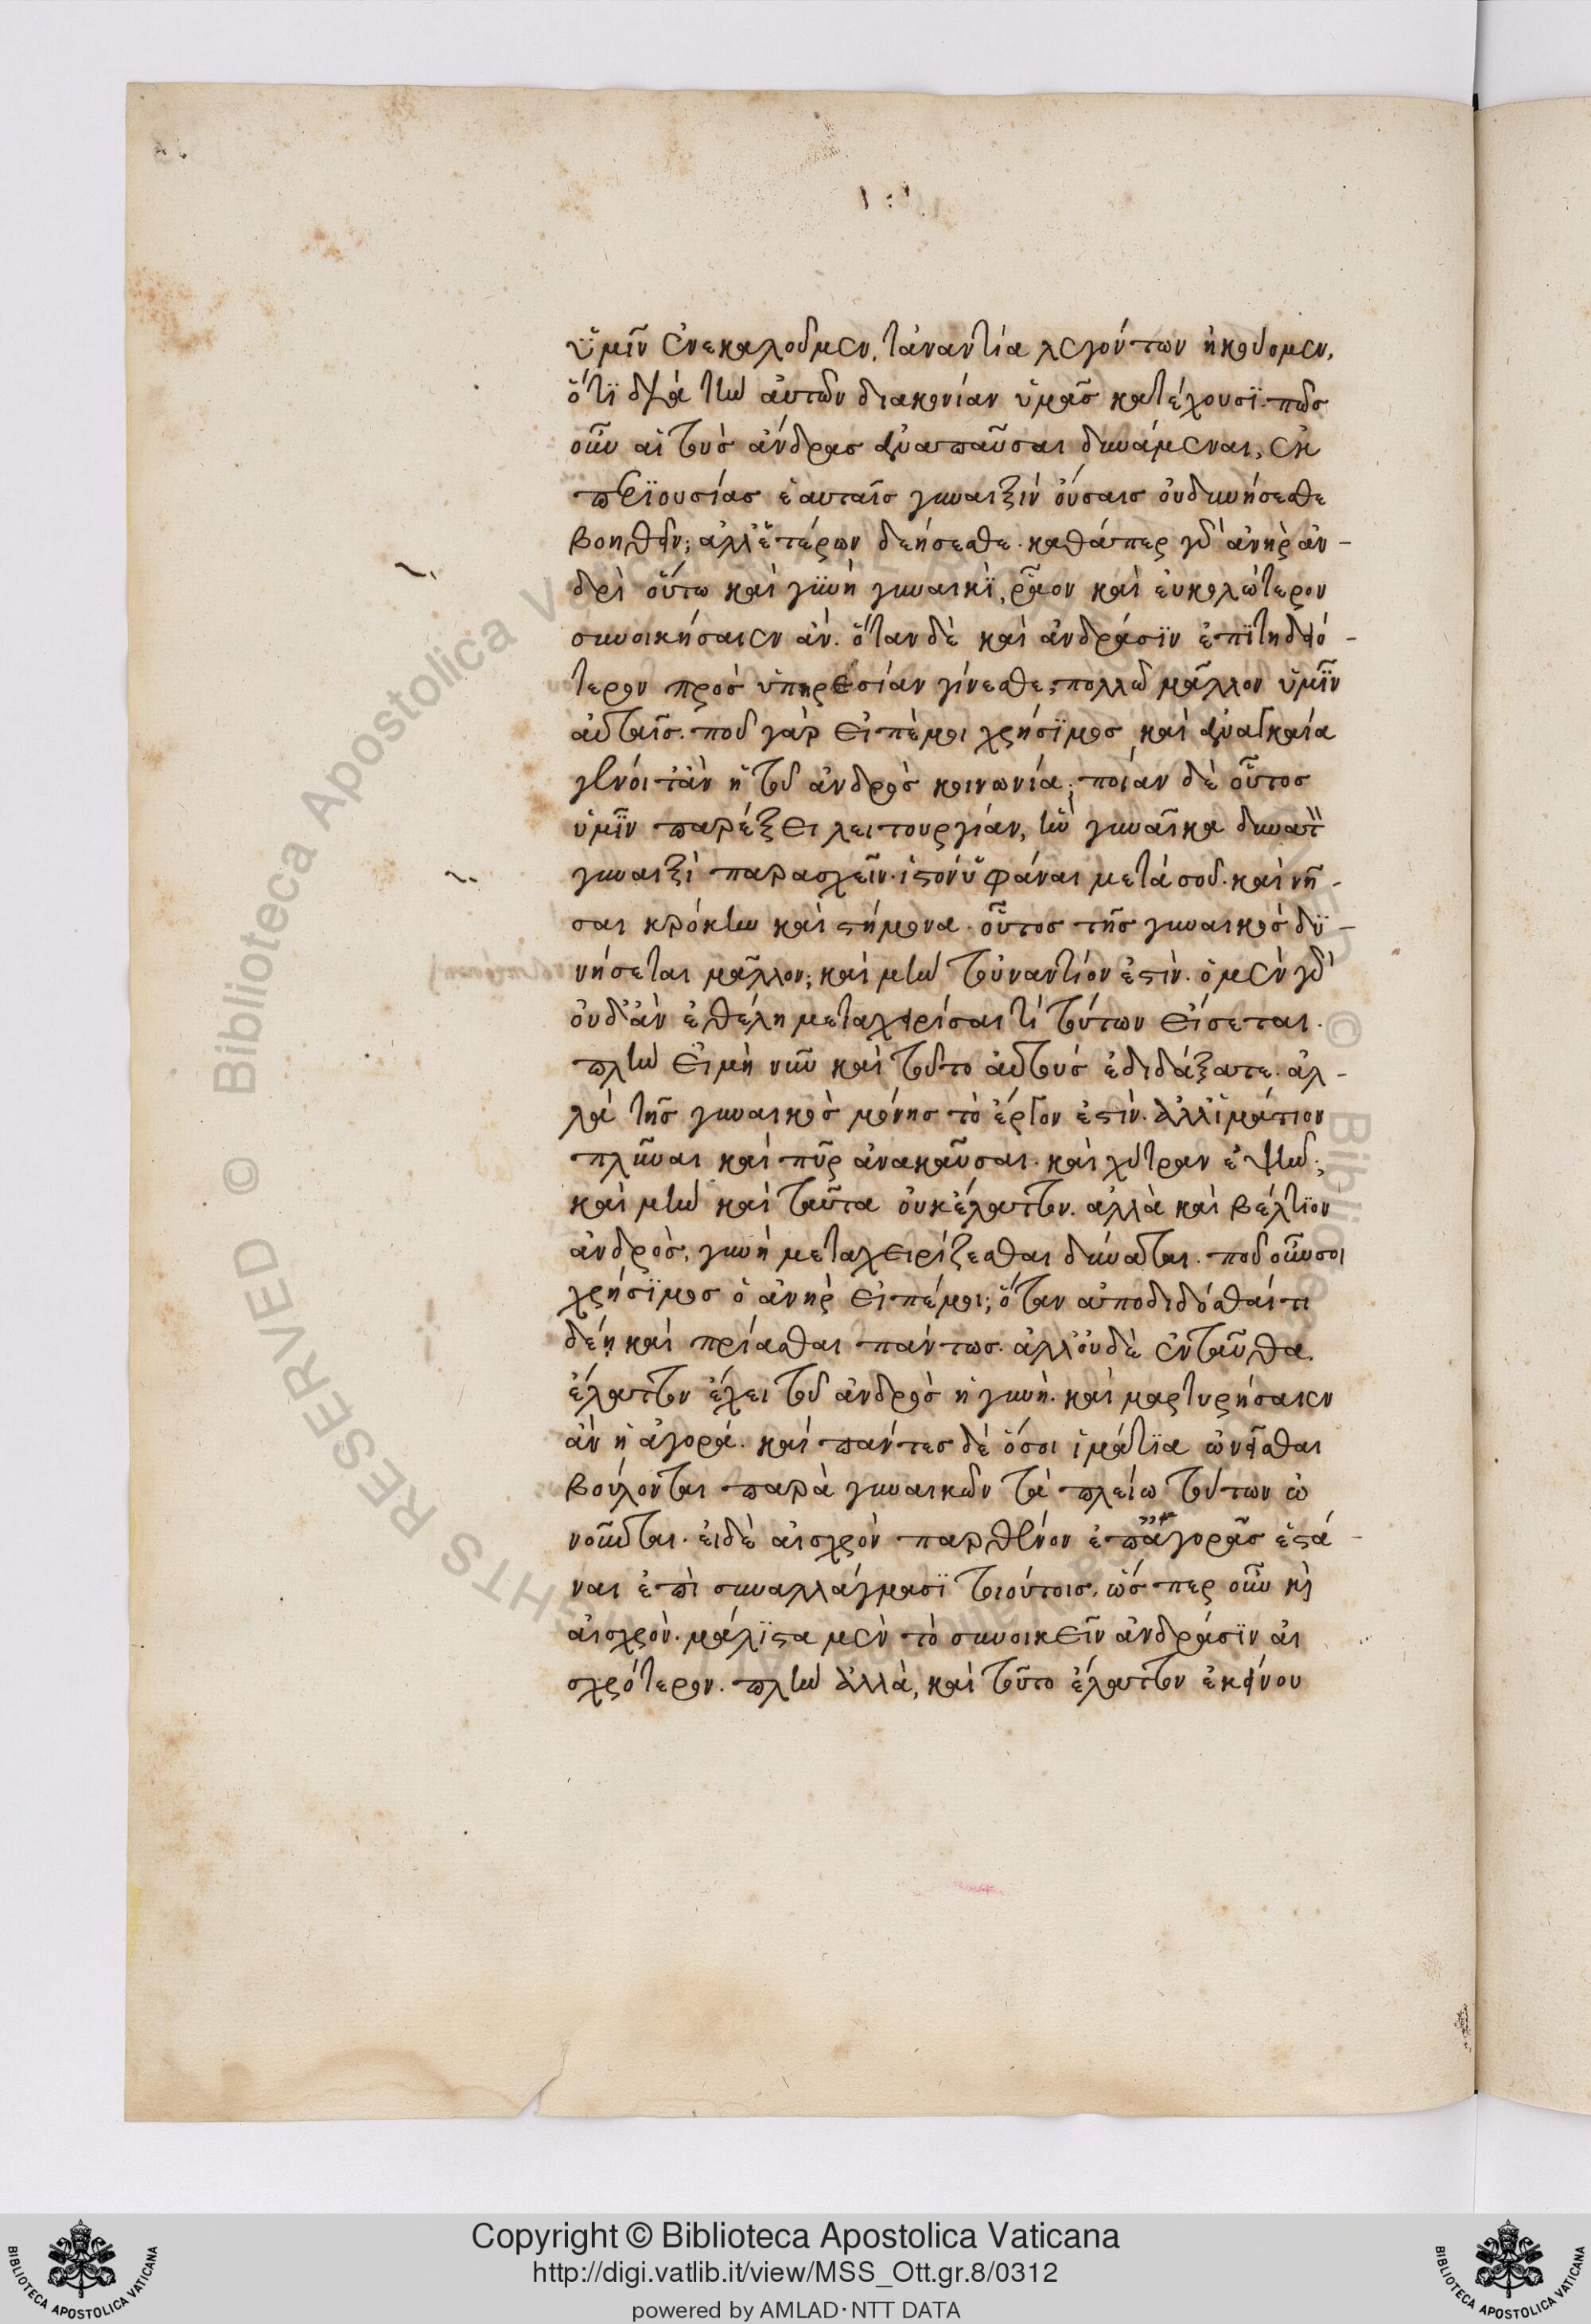 ὑμῖν ἐνεκαλοῦμεν, τἀναντία λεγόντων ἠκούομεν,
ὅτι διὰ τὴν αὐτῶν διακονίαν ὑμᾶς κατέχουσι. πῶς
οὖν αἱ τοὺς ἄνδρας ἀναπαῦσαι δυνάμεναι, ἐκ
περιουσίας ἑαυταῖς γυναιξὶν οὔσαις οὐ δυνήσεσθε
βοηθεῖν; ἀλλ' ἑτέρων δεήσεσθε. καθάπερ γὰρ ἀνὴρ ἀν-
δρὶ οὕτω καὶ γυνὴ γυναικὶ, ῥᾷον καὶ εὐκολώτερον
συνοικήσαιεν ἄν. ὅταν δὲ καὶ ἀνδράσιν ἐπιτηδειό-
τερον πρὸς ὑπηρεσίαν γίνεσθε, πολλῷ μᾶλλον ὑμῖν
αὐταῖς. ποῦ γὰρ εἰπέ μοι χρήσιμος καὶ ἀναγκαία
γένοιτ' ἂν ἡ τοῦ ἀνδρὸς κοινωνία; ποίαν δὲ οὗτος
ὑμῖν παρέξει λειτουργίαν, ἣν γυναῖκα δυνατὸν
γυναιξὶ παρασχεῖν. ἱστὸν ὑφάναι μετὰ σοῦ. καὶ νῆ-
σαι κρόκην καὶ στήμονα. οὗτος τῆς γυναικὸς δυ-
νήσεται μᾶλλον; καὶ μὴν τοὐναντίον ἐστίν. ὁ μὲν γὰρ
οὐδ' ἂν ἐθέλῃ μεταχειρίσαι τι τούτων εἴσεται.
πλὴν εἰ μὴ νῦν καὶ τοῦτο αὐτοὺς ἐδιδάξατε. ἀλ-
λὰ τῆς γυναικὸς μόνης τὸ ἔργον ἐστίν. ἀλλ' ἱμάτιον
πλῦναι καὶ πῦρ ἀνακαῦσαι. καὶ χύτραν ἑψεῖν;
καὶ μὴν καὶ ταῦτα οὐκ ἔλαττον. ἀλλὰ καὶ βέλτιον
ἀνδρὸς, γυνὴ μεταχειρίζεσθαι δύναται. ποῦ οὖν σοι
χρήσιμος ὁ ἀνὴρ εἰπέ μοι; ὅταν ἀποδιδόσθαί τι
δέῃ καὶ πρίασθαι πάντως. ἀλλ' οὐδὲ ἐνταῦθα
ἔλαττον ἔχει τοῦ ἀνδρὸς ἡ γυνή. καὶ μαρτυρήσαιεν
ἂν ἡ ἀγορά. καὶ πάντες δὲ ὅσοι ἱμάτια ὠνεῖσθαι
βούλονται παρὰ γυναικῶν τὰ πλείω τούτων ὠ
νοῦνται. εἰ δὲ αἰσχρὸν παρθένον ἐπ' ἀγορᾶς ἑστά-
ναι ἐπὶ συναλλάγμασι τοιούτοις, ὥσπερ οὖν καὶ
αἰσχρόν. μάλιστα μὲν τὸ συνοικεῖν ἀνδράσιν αἰ
σχρότερον. πλὴν ἀλλὰ, καὶ τοῦτο ἔλαττον ἐκείνου
Copyright © Biblioteca Apostolica Vaticana
http://digi.vatlib.it/view/MSS_Ott.gr.8/0312
powered by AMLAD·NTT DATA